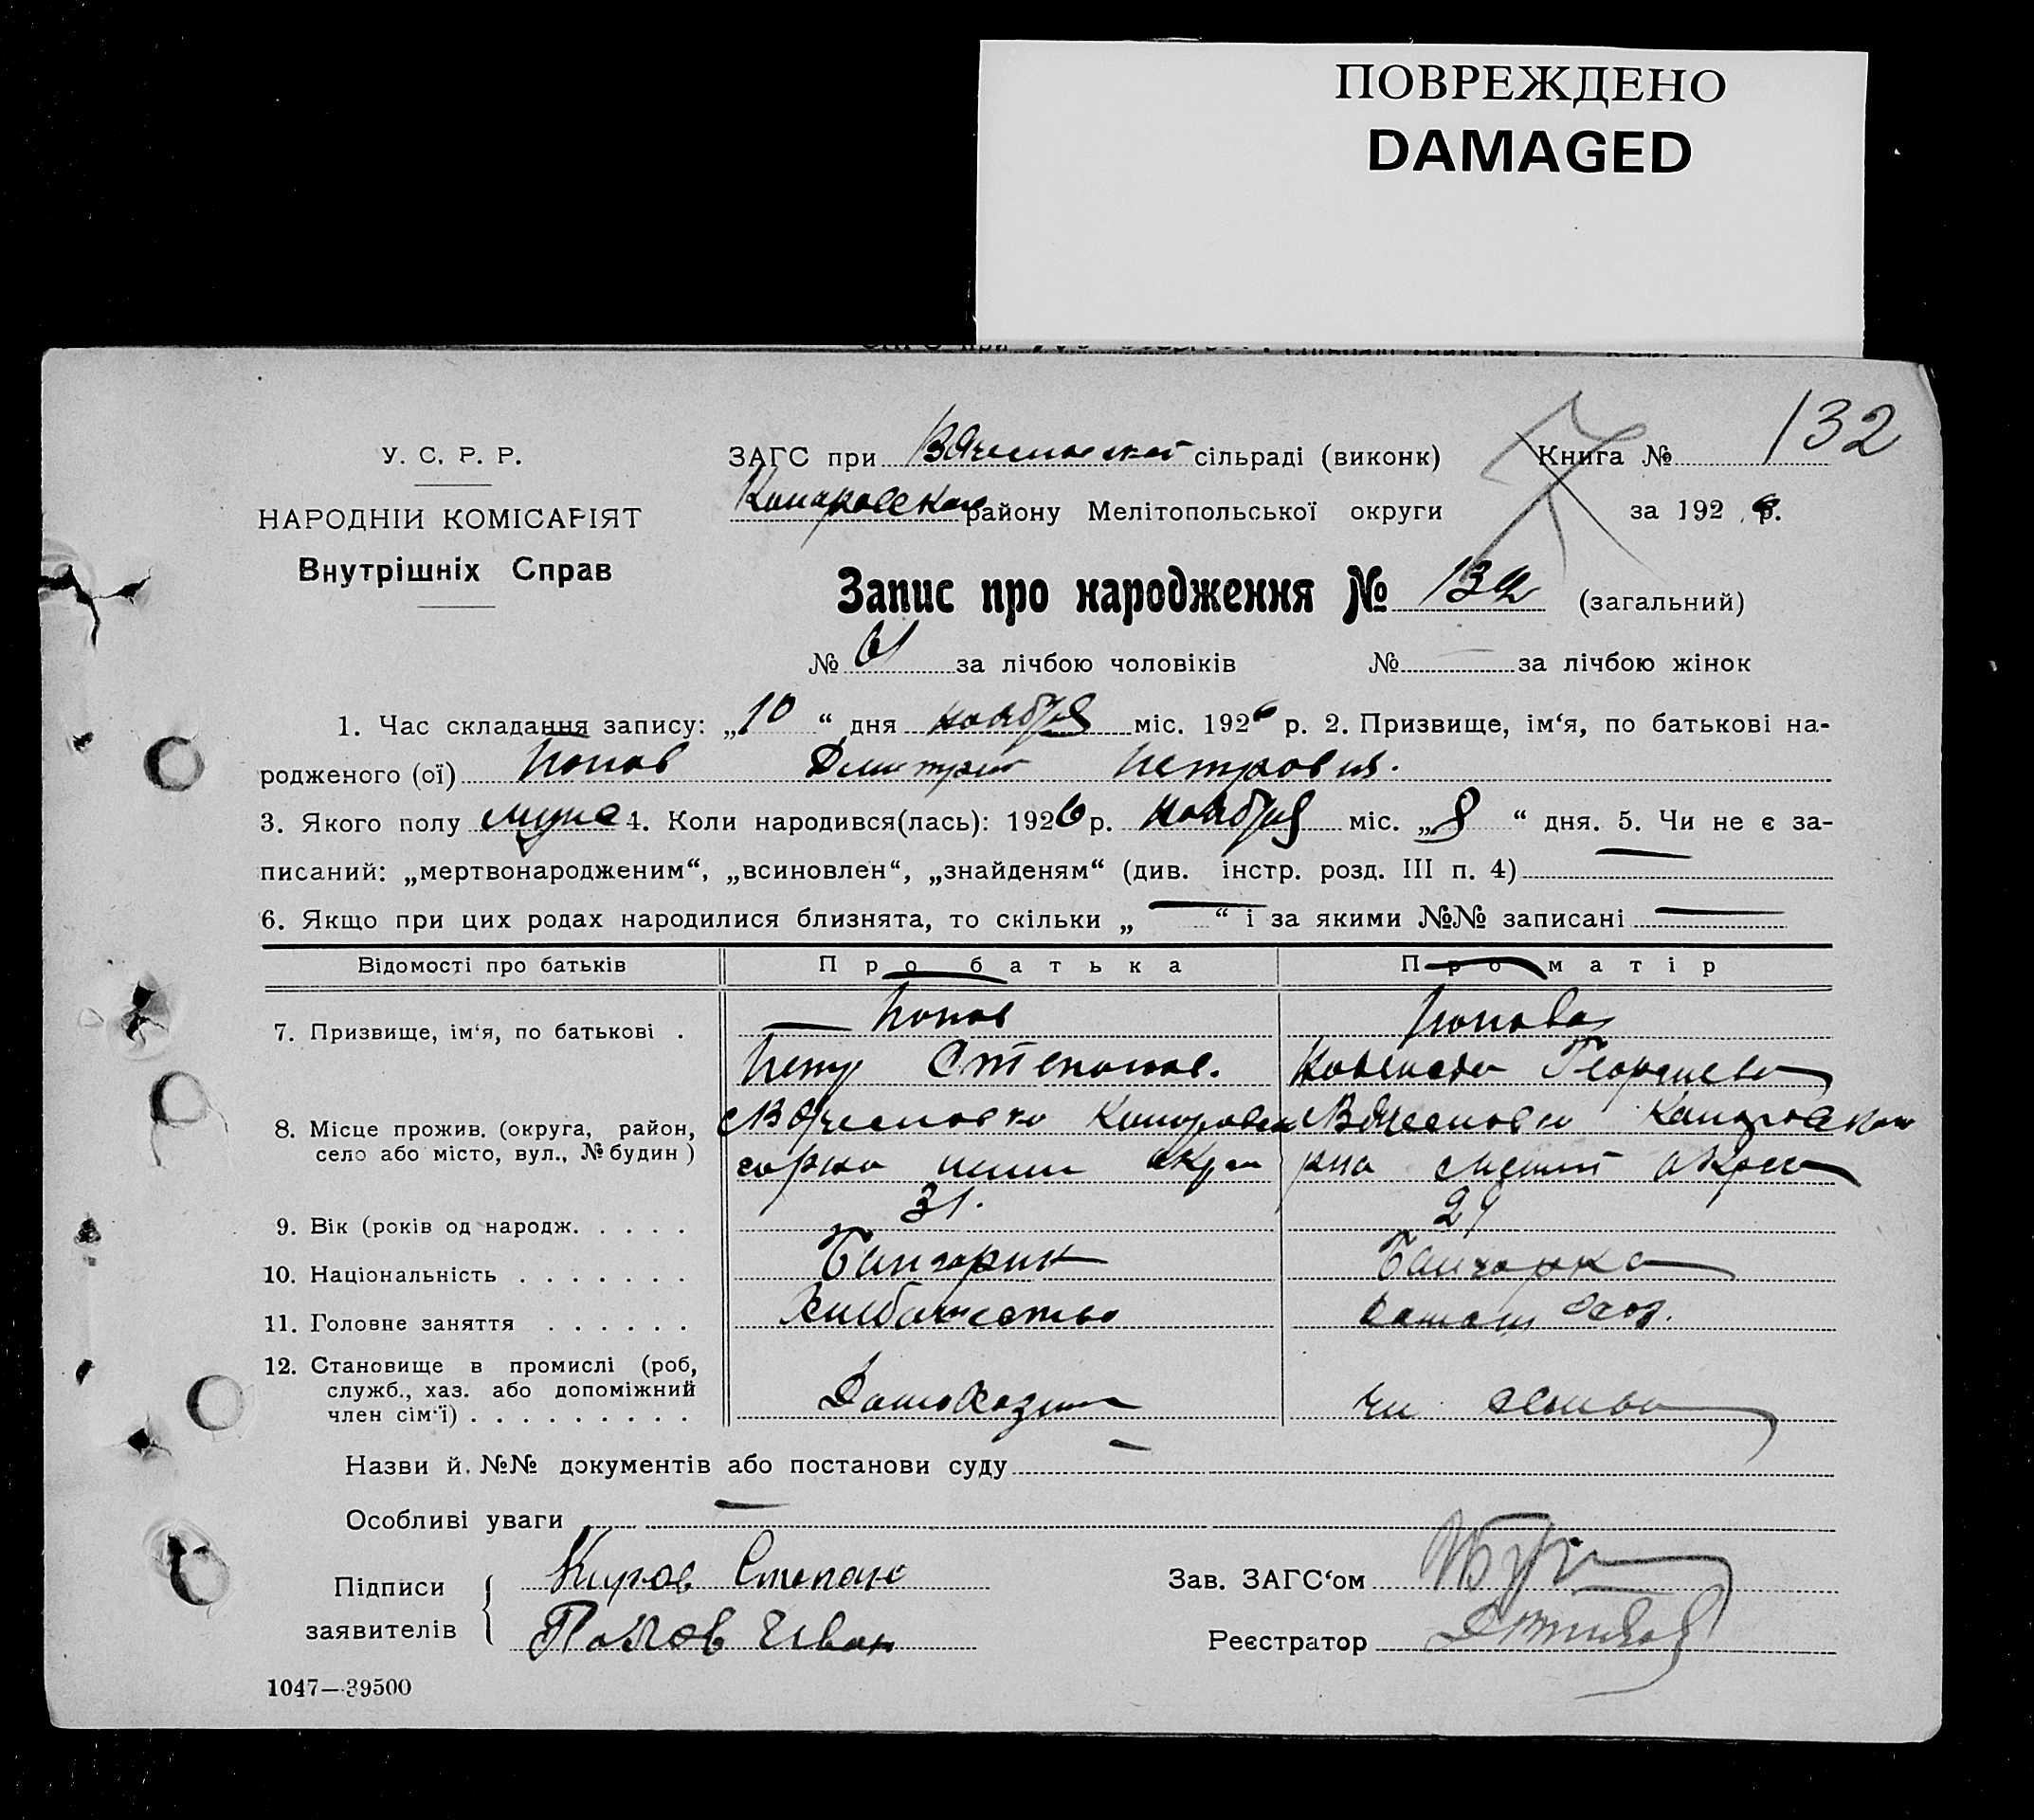 ПОВРЕЖДЕНО
DAMAGED
132
У. С. Р. Р.
НАРОДНІИ КОМІСАРІЯТ
Внутрішніх Справ
ЗАГС при сільраді (виконк) Книга №
району Мелітопольської округи за 1926 р.
Запис про народження № 132 (загальний)
№ 61 за лічбою чоловіків № — за лічбою жінок
1. Час складання запису: „10“ дня ноября міс. 1926 р. 2. Призвище, ім‘я, по батькові на-
родженого (ої) Попов Дмитрий Петрович.
3. Якого полу муже 4. Коли народився(лась): 1926 р. ноября міс. „8“ дня. 5. Чи не є за-
писаний: „мертвонародженим“, „всиновлен“, „знайденям“ (див. інстр. розд. III п. 4) —
6. Якщо при цих родах народилися близнята, то скільки „ — “ і за якими №№ записані —
Відомості про батьків Про батька Про матір
7. Призвище, ім‘я, по батькові . Попов Попова
Петр Степанов. Георгиева
8. Місце прожив. (округа, район,
село або місто, вул., № будин )
9. Вік (років од народж. . . . . 31. 24
10. Національність . . . . . . . Болгарин Болгарка
11. Головне заняття . . . . . . Хлебопашество Домаш
12. Становище в промислі (роб,
служб., хаз. або допоміжний
член сім‘ї) . . . . . . . . . Домохозяин чл семьи
Назви й. №№ документів або постанови суду —
Особливі уваги —
Підписи
заявителів
Киров Степан
Попов Иван
Зав. ЗАГС‘ом
Реєстратор
1047—39500